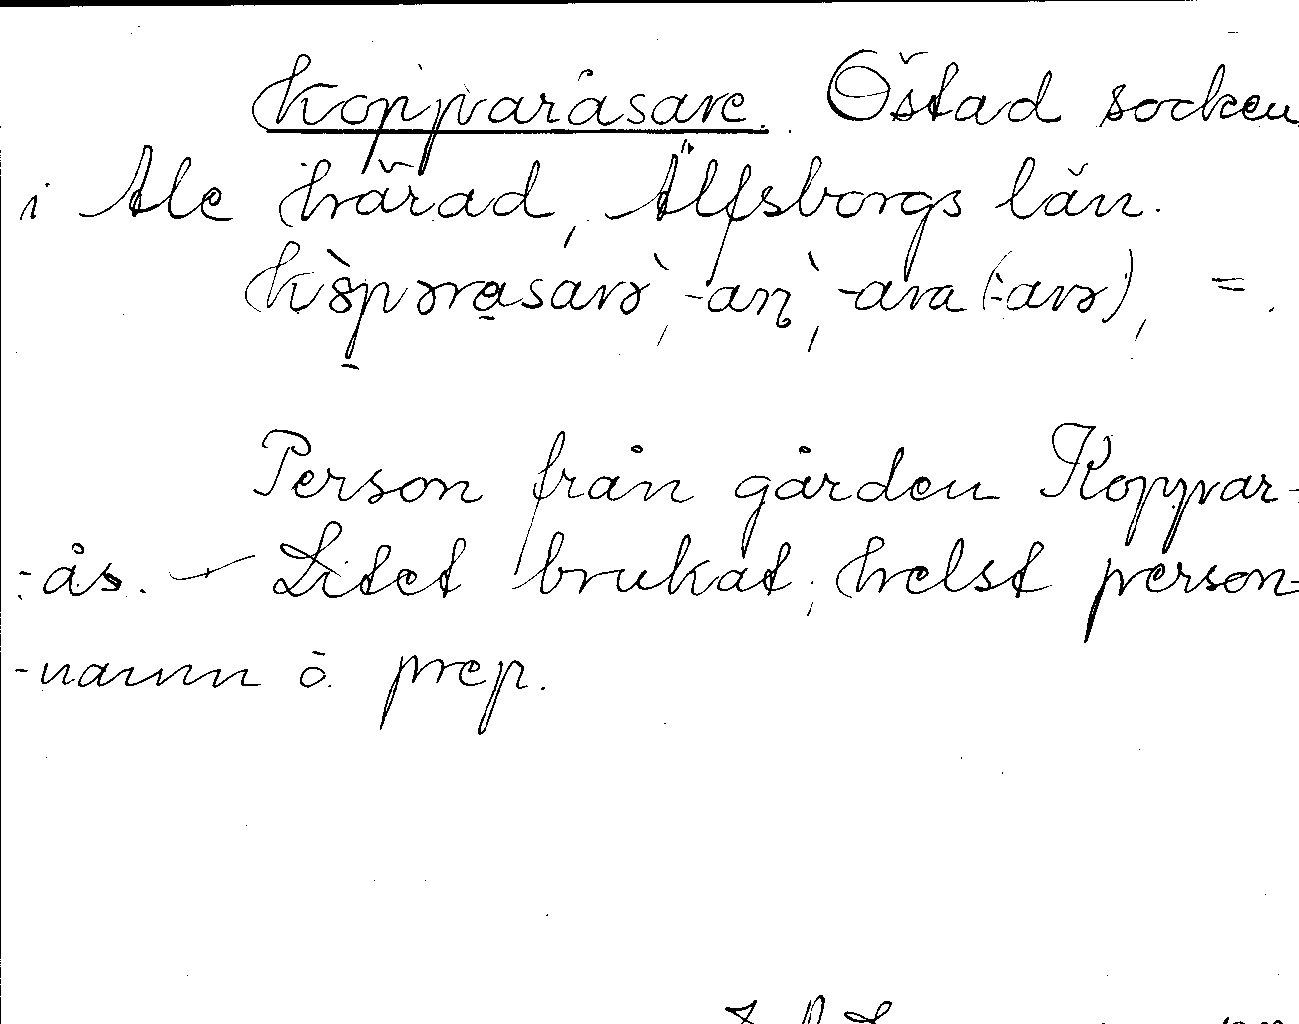 Kopparåsare. Östad socken
i Ale härad, Älfsborgs län.
Person från gården Koppar-
-ås. — Litet brukat, helst person-
-namn o. prep.